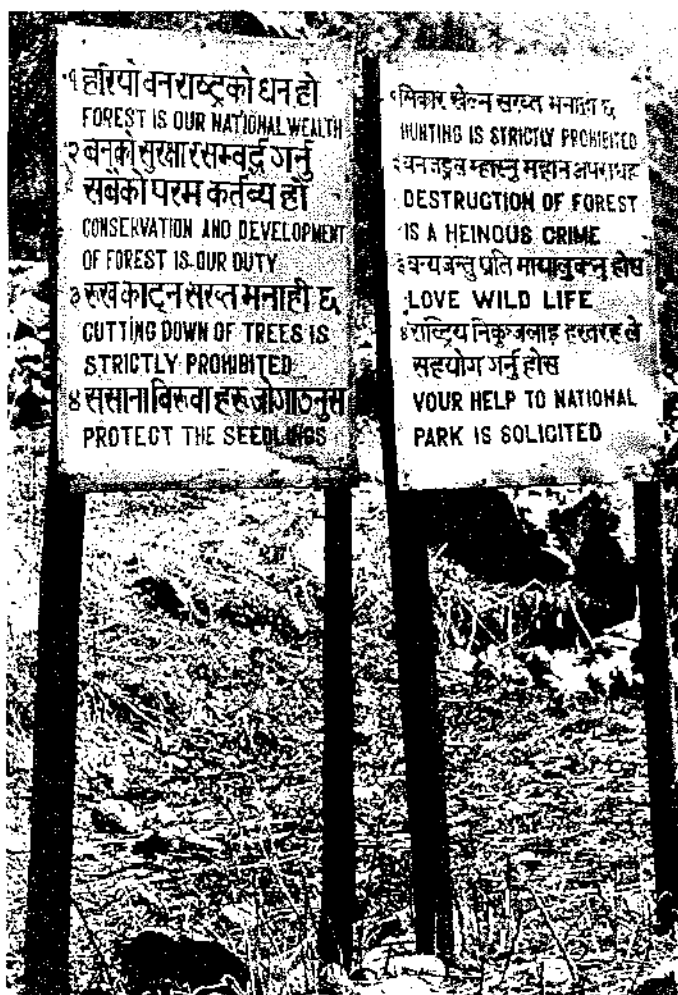 १ हरियो वन राष्ट्रको धन हो
FOREST IS OUR NATIONAL WEALTH
२ बनको सुरक्षा र सम्वर्द्ध गर्नु
सबैको परम कर्तव्य हो
CONSERVATION AND DEVELOPMENT
OF FOREST IS OUR DUTY
३ रुख काट्न सख्त मनाही छ
CUTTING DOWN OF TREES IS
STRICTLY PROHIBITED
४ ससाना विरुवा हरू जोगाउनुस
PROTECT THE SEEDLINGS
सिकार खेल्न सख्त मनाही छ
HUNTING IS STRICTLY PROHIBITED
२ वन जङ्गल महान अपराध हो
DESTRUCTION OF FOREST
IS A HEINOUS CRIME
३ वन्य जन्तु प्रति मायालु हुनु होस
LOVE WILD LIFE
४ राष्ट्रिय निकुञ्जलाइ हरतरह ले
सहयोग गर्नु होस
YOUR HELP TO NATIONAL
PARK IS SOLICITED